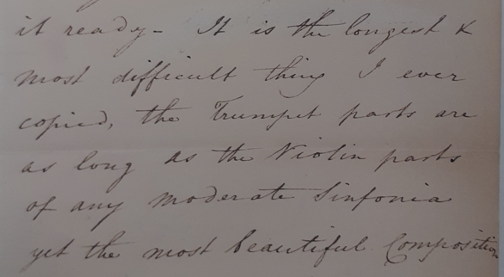 it ready - It is the longest &
most difficult thing I ever
copied, the Trumpet parts are
as long as the Violin parts
of any moderate Sinfonia
yet the most beautiful Composition